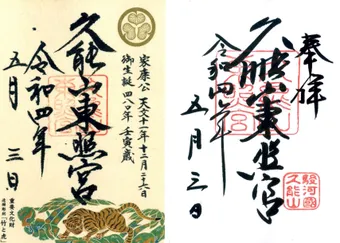 家康公 天文十一年十二月二十六日
御生誕四八〇年 壬寅歳
久能山東照宮
令和四年
五月三日
重要文化財
「竹と虎」
奉拝
久能山東照宮
令和四年
五月三日
駿河國
久能山